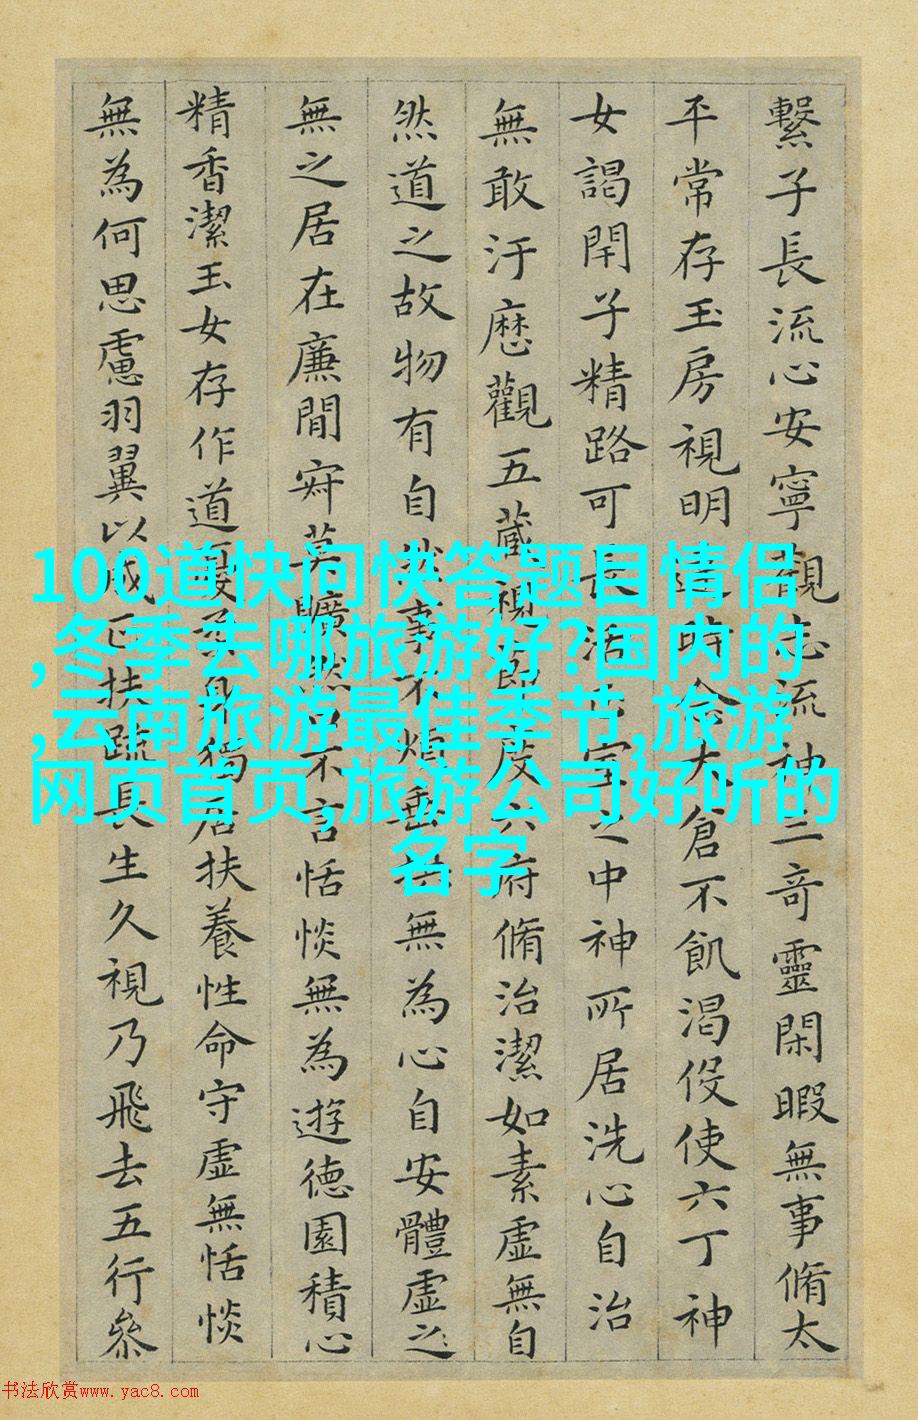 繫子長流心安寧觀志流神三奇靈閑暇無事脩太
平常存玉房視明達時念大倉不飢渴伇使六丁神
女謁閇子精路可長活正室之中神所居洗心自治
無敢汙歷觀五藏視節度六府脩治潔如素虛無自
然道之故物有自然事不煩垂拱無為心自安體虛之
無之居在廉間寂莫曠然口不言恬惔無為遊德園積心
精香潔玉女存作道憂柔身獨居扶養性命守虛無恬惔
無為何思慮羽翼以成正扶疏長生久視乃飛去五行參
100道快问快答题目情侣
,冬季去哪旅游好?国内的
,云南旅游最佳季节,旅游
网页首页,旅游公司好听的
名字
书法欣赏www.yac8.com